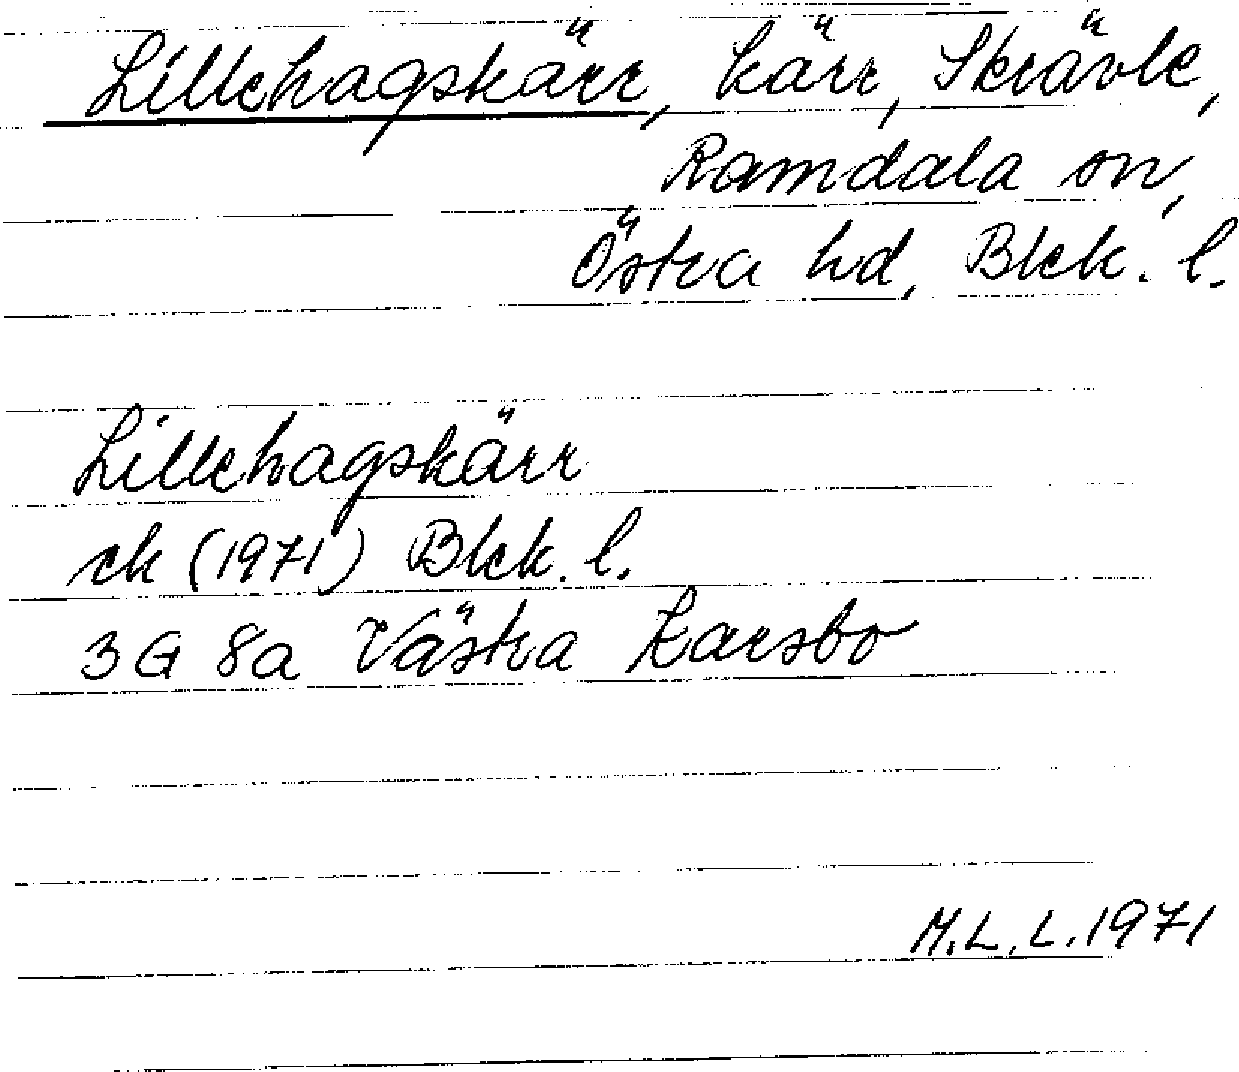 Lillehagskärr, kärr, Skrävle,
Ramdala sn,
Östra hd, Blek. l.
Lillehagskärr
ek (1971) Blek. l.
3G 8a Västra Karsbo
M.L.L. 1971